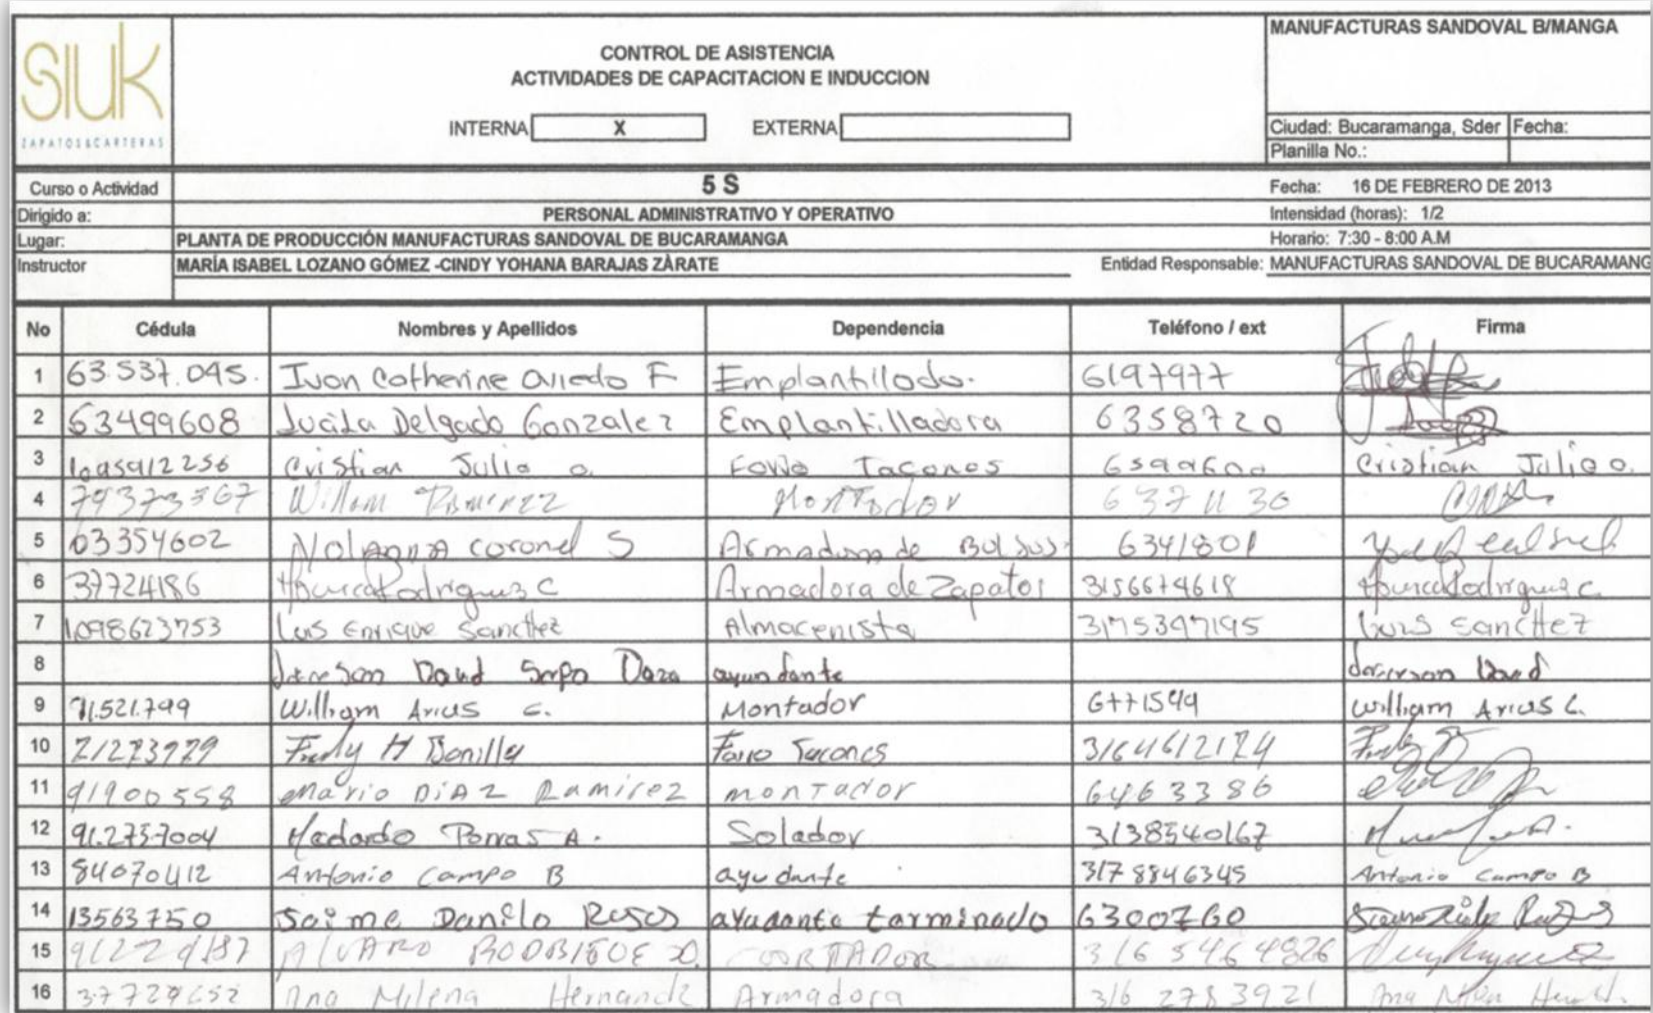 siuk
ZAPATOS&CARTERAS
CONTROL DE ASISTENCIA
ACTIVIDADES DE CAPACITACION E INDUCCION
INTERNA X EXTERNA
MANUFACTURAS SANDOVAL B/MANGA
Ciudad: Bucaramanga, Sder Fecha:
Planilla No.:
Curso o Actividad 5 S Fecha: 16 DE FEBRERO DE 2013
Dirigido a: PERSONAL ADMINISTRATIVO Y OPERATIVO Intensidad (horas): 1/2
Lugar: PLANTA DE PRODUCCIÓN MANUFACTURAS SANDOVAL DE BUCARAMANGA Horario: 7:30 - 8:00 A.M
Instructor MARÍA ISABEL LOZANO GÓMEZ -CINDY YOHANA BARAJAS ZÀRATE Entidad Responsable: MANUFACTURAS SANDOVAL DE BUCARAMANG
No Cédula Nombres y Apellidos Dependencia Teléfono / ext Firma
1 63.537.045. Ivon Catherine Oviedo F Emplantillado. 6197977
2 63499608 Lucila Delgado Gonzalez Emplantilladora 6358720
3 Cristian Julio o. Forro Tacones Cristian Julio o.
4 79373567 William Ramirez Montador 6371130
5 63354602 Coronel S Armadora de Bolsos 6341801
6 37724186 Rodriguez C Armadora de Zapatos 3156674618 Rodriguez C
7 1098623753 Luis Enrique Sanchez Almacenista 3175397195 Luis Sanchez
8 David Daza ayundante David
9 91.521.799 William Arius C. Montador 6771599 William Arius C.
10 Fredy H Bonilla Forro Tacones 3164612174
11 91900558 Mario DiAZ Ramirez montador 6463386
12 91.275.7004 Medardo Porras A. Solador 3138540167
13 84070412 Antonio Campo B ayudante 3178846345 Antonio Campo B
14 13563750 Jaime Danilo ayudante terminado 6300760
15 ALVARO CORTADOR 3165464826
16 37729652 Ana Milena Hernandz Armadora 316 2783921